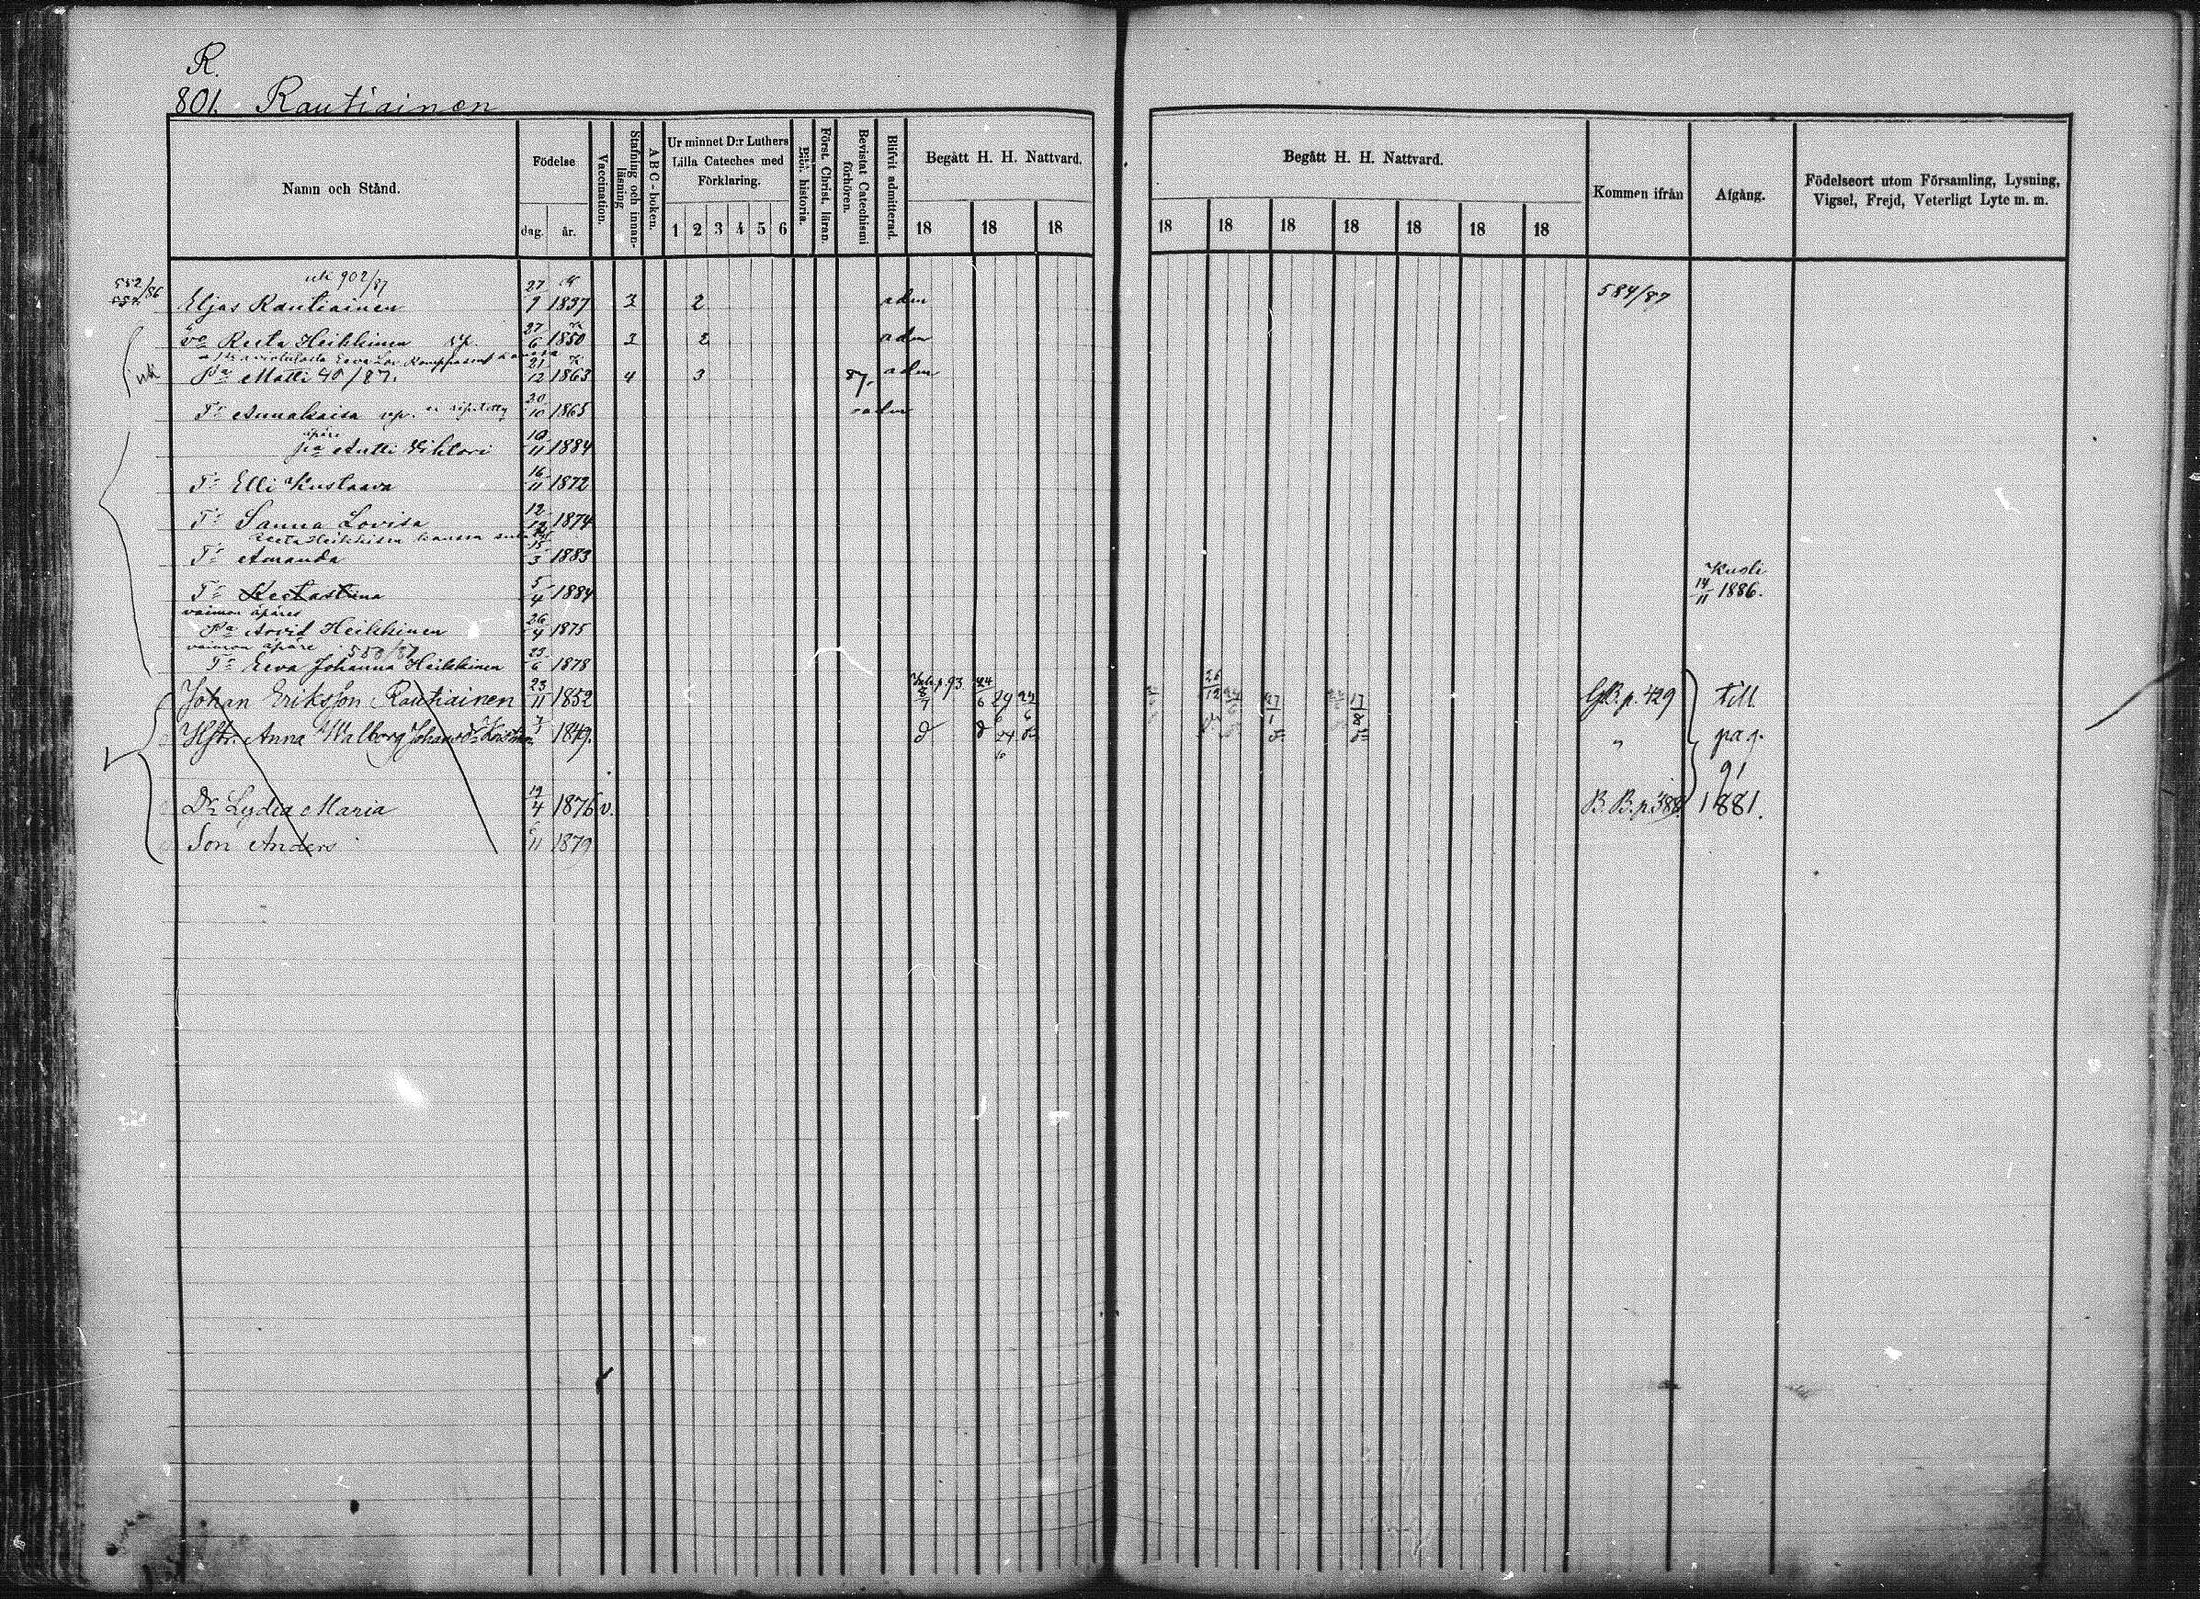 R.
801. Rautiainen
Namn och Stånd.
Födelse
dag.
år.
Vaccination.
Stafning och innanläsning
A B C-boken.
Ur minnet D:r Luthers Lilla Cateches med Förklaring.
1 2 3 4 5 6
Bibl. historia.
Först. Christ. läran.
Bevistat Catechismi förhören.
Blifvit admitterad.
Begått H. H. Nattvard.
18 18 18
Begått H. H. Nattvard.
18 18 18 18 18 18 18
Kommen ifrån
Afgång.
Födelseort utom Församling, Lysning, Vigsel, Frejd, Veterligt Lyte m. m.
902/87
552/86
Eljas Rautiainen 27/7 1837 3 2 adm 584/87
vo Reeta Heikkinen vp. 27/6 1850 3 2 adm
Pa Matti 40/87. 21/12 1863 4 3 87. adm
Tr Annakaisa vp. 30/10 1865 adm
äpäre
pa Antti Vihtori 10/11 1884
Tr Elli Kustaava 16/11 1872
Tr Sanna Lovisa 12/12 1874
Reeta Heikkisen kanssa
Tr Amanda 15/3 1883
Tr Reetastiina 5/4 1884 Kuoli 14/11 1886.
vaimon äpäres
Pa Arvid Heikkinen 26/4 1875
vaimon äpäre 550/87
Tr Eeva Johanna Heikkinen 23/6 1878
Johan Eriksson Rautiainen 23/11 1852 p. 93. 24/6 29/6 G.B. p. 429 till
Hstr. Anna Walborg Johansdr 1849. " pag.
91
Dr Lydia Maria 19/4 1876 v. B.B. p. 388 1881.
Son Anders 11 1879